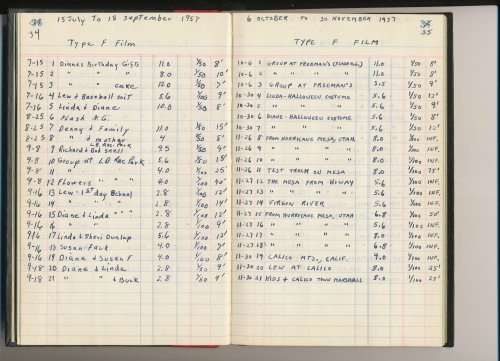 15 July To 18 September 1957
34
Type F Film
7-15 1 Diane's Birthday Gifts 11.0 1/50 8'
7-15 2 " " " 8.0 1/50 10'
7-15 3 " " cake 12.0 1/50 7'
7-16 4 Lew + Baseball suit 5.6 1/50 9'
7-16 5 Linda + Diane 10.0 1/50 8'
8-25 6 Flash N.G.
8-25 7 Denny + Family 11.0 1/50 15'
8-25 8 " + mother 4 1/50 8'
9-8 9 Richard + Bob snell L.B. Rec. Park 9.5 1/50 9'
9-8 10 Group at L.B. Rec. Park 5.6 1/50 18'
9-8 11 " " 4.0 1/100 25'
9-8 12 Flowers " " " 4.0 1/100 90'
9-16 13 Lew - 1st day School 2.8 1/100 12'
9-16 14 " " " " 2.8 1/100 14'
9-16 15 Diane + Linda " " " 2.8 1/100 12'
9-16 16 " " " 2.8 1/100 12'
9-16 17 Linda + Sheri Dunlap 5.6 1/100 12'
9-16 18 Susan Fauk 4.0 1/100 7'
9-16 19 Diane + Susan F 4.0 1/100 8'
9-18 20 Diane + Linda 2.8 1/50 9'
9-18 21 " " + Buck 2.8 1/50 9'
6 OCTOBER TO 30 NOVEMBER 1957
35
TYPE F FILM
10-6 1 GROUP AT FREEMAN'S 11.0 1/50 8'
10-6 2 " " " 11.0 1/50 8'
10-6 3 GROUP AT FREEMAN'S 3.5 1/50 9'
10-30 4 LINDA-HALLOWEEN COSTUME 5.6 1/50 12'
10-30 5 " " " 5.6 1/50 9'
10-30 6 DIANE-HALLOWEEN COSTUME 5.6 1/50 8'
10-30 7 " " " 5.6 1/50 12'
11-26 8 FROM HURRICANE MESA, UTAH 8.0 1/100 INF.
11-26 9 " " " " 9.0 1/100 INF.
11-26 10 " " " " 8.0 1/100 INF.
11-26 11 TEST TRACK ON MESA 8.0 1/100 75'
11-27 12 THE MESA FROM HIWAY 5.6 1/100 INF.
11-27 13 " " " " 5.6 1/100 INF.
11-27 14 VIRGIN RIVER 5.6 1/100 INF.
11-27 15 FROM HURRICANE MESA, UTAH 6.8 1/100 50'
11-27 16 " " " " 8.0 1/100 INF.
11-27 17 " " " " 8.0 1/100 INF.
11-27 18 " " " " 6.8 1/100 INF.
11-30 19 CALICO MTS., CALIF. 9.0 1/100 INF.
11-30 20 LEW AT CALICO 8.0 1/100 25'
11-30 21 KIDS + CALICO TOWN MARSHALL 8.0 1/100 25'